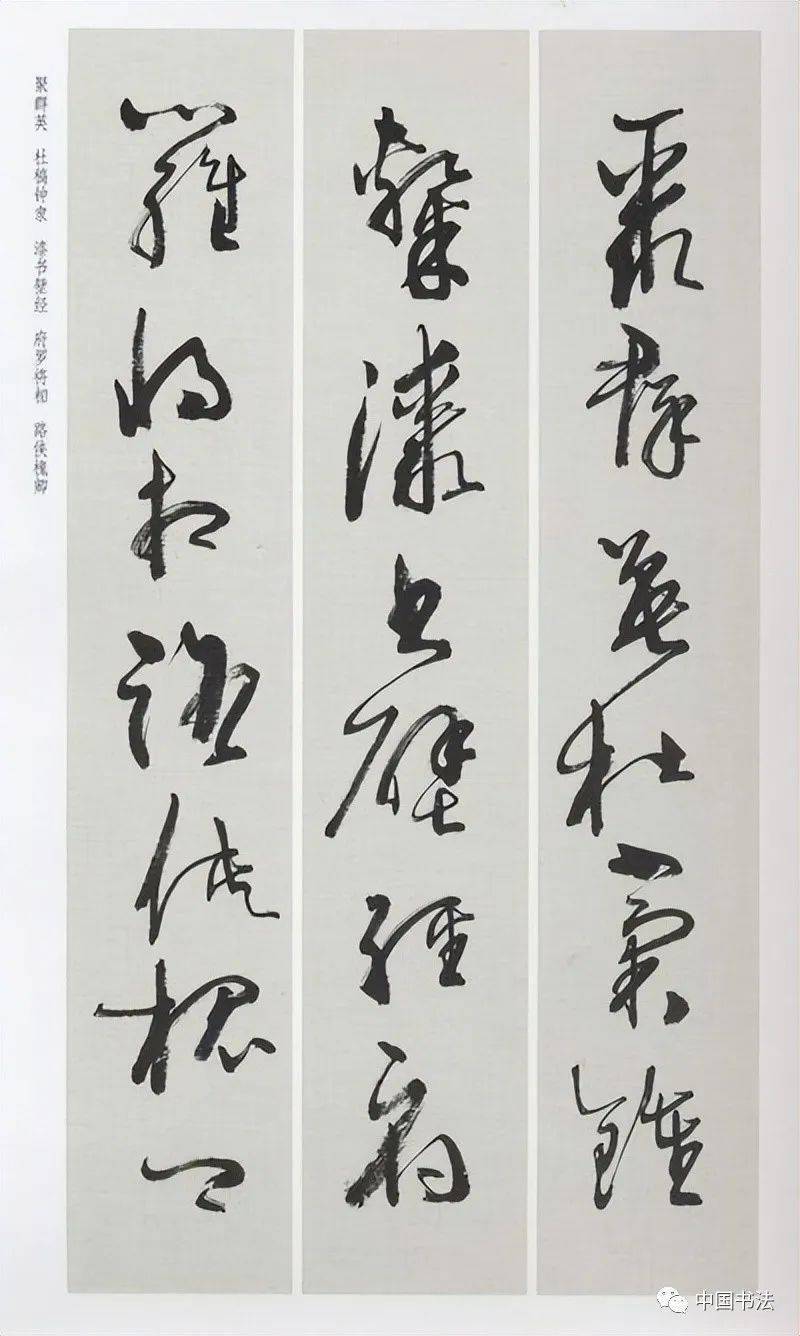 聚群英杜稾鍾
隸漆書壁經府
羅將相路俠槐卿
聚群英 杜稿钟隶 漆书壁经 府罗将相 路侠槐卿
中国书法